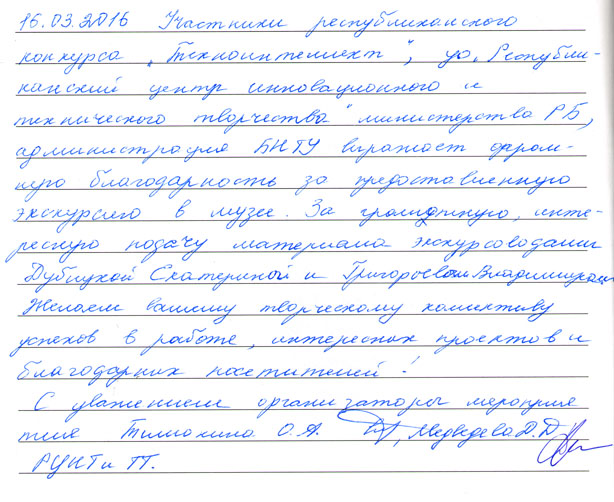 16.03.2016 Участники республиканского
конкурса „Техноинтеллект", уо „Республи-
канский центр инновационного и
технического творчества" министерства РБ,
администрация БНТУ выражает огром-
ную благодарность за предоставленную
экскурсию в музее. За грамотную, инте-
ресную подачу материала экскурсоводами
Дубицкой Екатериной и Григорьевым Владимиром
Желаем вашему творческому коллективу
успехов в работе, интересных проектов и
благодарных посетителей!
С уважением организаторы мероприя
тия О.А. Медведева Д.Д
РЦИТиТТ.